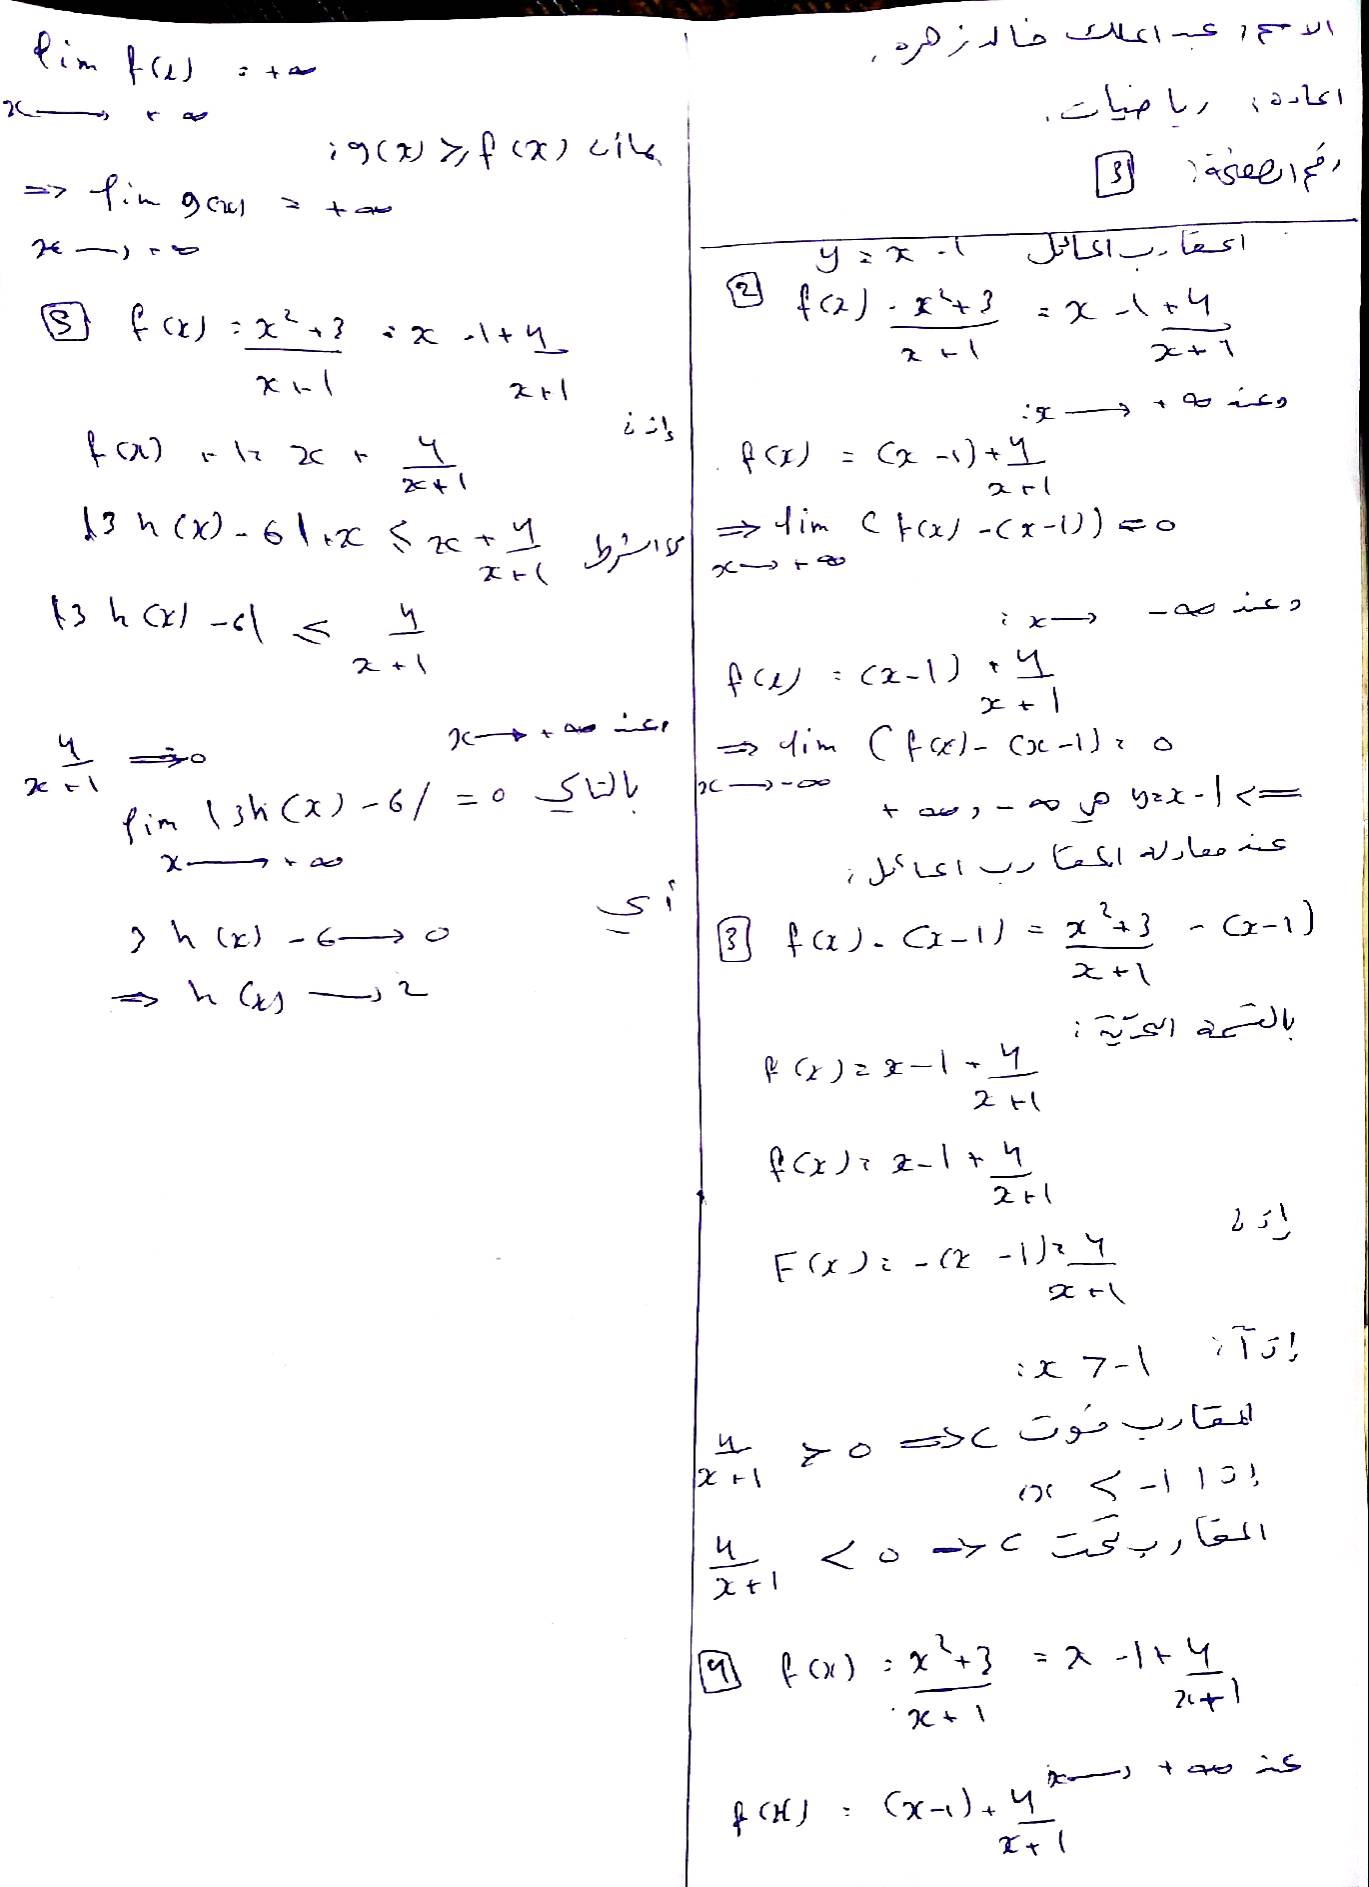 الاسم: عبد الملك خالد زهره.
المادة: رياضيات.
رقم الصفحة: 3
المقارب المائل y = x - 1
2 f(x) = x²+3 / x+1 = x - 1 + 4 / x+1
وعند x → +∞:
f(x) = (x-1) + 4 / x+1
⇒ lim (f(x) - (x-1)) = 0
x → +∞
وعند x → -∞:
f(x) = (x-1) + 4 / x+1
⇒ lim (f(x) - (x-1)) = 0
x → -∞
⇒ y = x - 1 هي -∞ و +∞
عند معادلة المقارب المائل:
3 f(x) - (x-1) = x²+3 / x+1 - (x-1)
بالقسمة
f(x) = x - 1 + 4 / x+1
f(x) = x - 1 + 4 / x+1
إذن
F(x) = -(x-1) = 4 / x+1
إذآ: x > -1:
4 / x+1 > 0 ⇒ C فوق المقارب
إذا x < -1
4 / x+1 < 0 ⇒ C تحت المقارب
4 f(x) = x²+3 / x+1 = x - 1 + 4 / x+1
عند x → +∞
f(x) = (x-1) + 4 / x+1
lim f(x) = +∞
x → +∞
بمأن g(x) ≥ f(x):
⇒ lim g(x) = +∞
x → +∞
5 f(x) = x²+3 / x+1 = x - 1 + 4 / x+1
إذن:
f(x) + 1 = x + 4 / x+1
الشرط |3h(x) - 6| + x ≤ x + 4 / x+1
|3h(x) - 6| ≤ 4 / x+1
وعند x → +∞
4 / x+1 → 0
بالتالي lim |3h(x) - 6| = 0
x → +∞
أي
3h(x) - 6 → 0
⇒ h(x) → 2